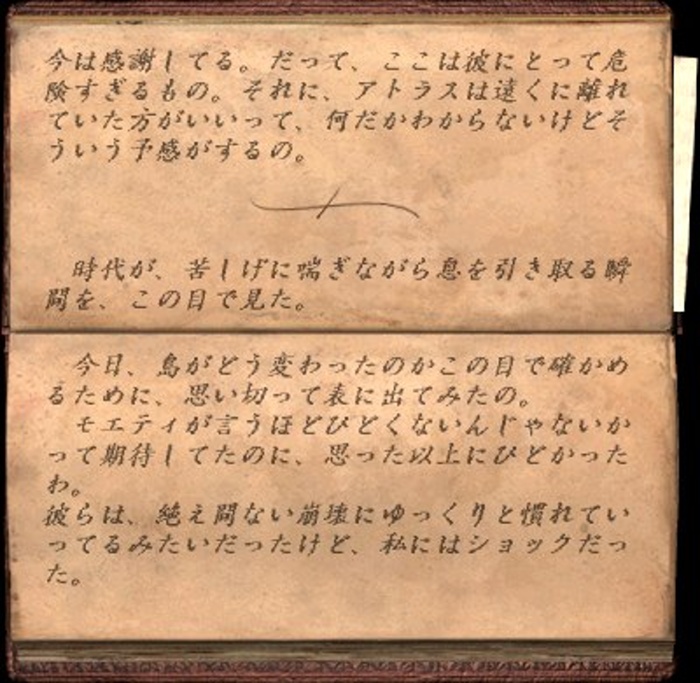 今は感謝してる。だって、ここは彼にとって危
険すぎるもの。それに、アトラスは遠くに離れ
ていた方がいいって、何だかわからないけどそ
ういう予感がするの。
時代が、苦しげに喘ぎながら息を引き取る瞬
間を、この目で見た。
今日、島がどう変わったのかこの目で確かめ
るために、思い切って表に出てみたの。
モエティが言うほどひどくないんじゃないか
って期待してたのに、思った以上にひどかった
わ。
彼らは、絶え間ない崩壊にゆっくりと慣れてい
ってるみたいだったけど、私にはショックだっ
た。